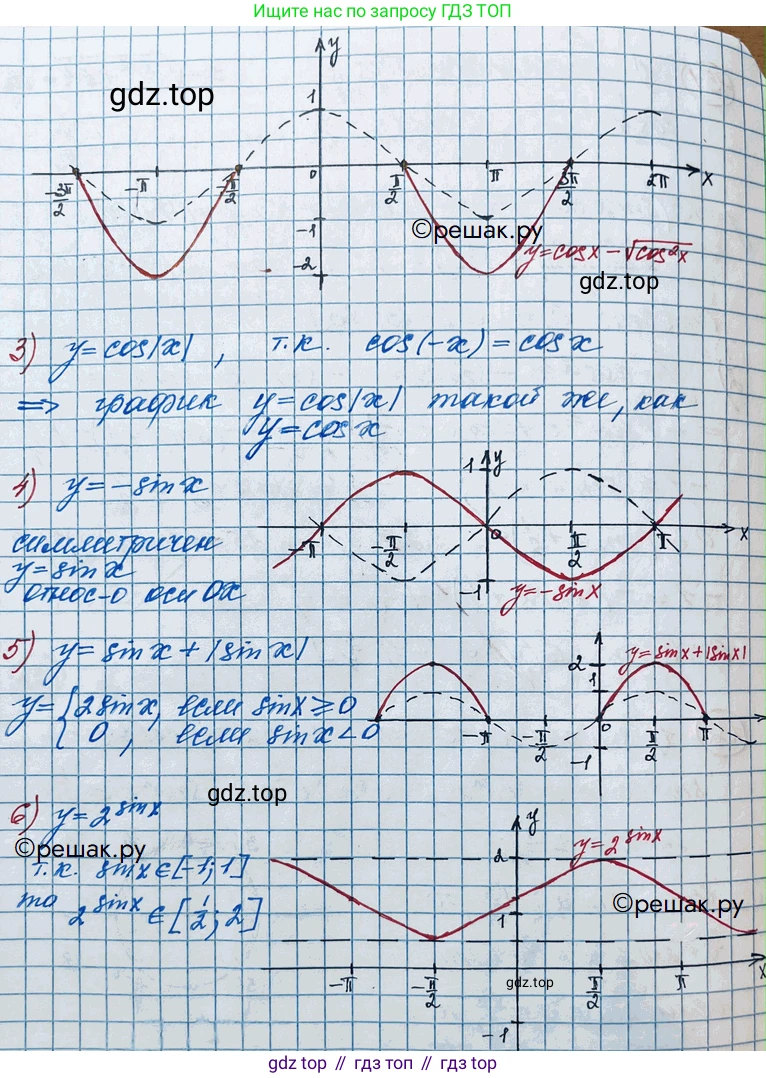 Ищите нас по запросу ГДЗ ТОП
gdz.top
y
1
-3π/2 -π -π/2 0 π/2 π 3π/2 2π x
-1
©решак.ру
y=cosx-√cos²x
-2
gdz.top
3) y=cos|x| , т.к. cos(-x)=cosx
=> график y=cos|x| такой же, как
y=cosx
4) y=-sinx
1 y
симметричен
y=sinx
относ-о оси OX
-π -π/2 0 π/2 π x
-1
y=-sinx
5) y=sinx+|sinx|
y={2sinx, если sinx≥0
0, если sinx<0
y=sinx+|sinx|
2
1
-π -π/2 0 π/2 π
-1
gdz.top
6) y=2^sinx
©решак.ру
т.к. sinx∈[-1;1]
то 2^sinx∈[1/2;2]
y
y=2^sinx
2
©решак.ру
1
x
-π -π/2 gdz.top π/2 π
-1
gdz top // гдз топ // gdz top